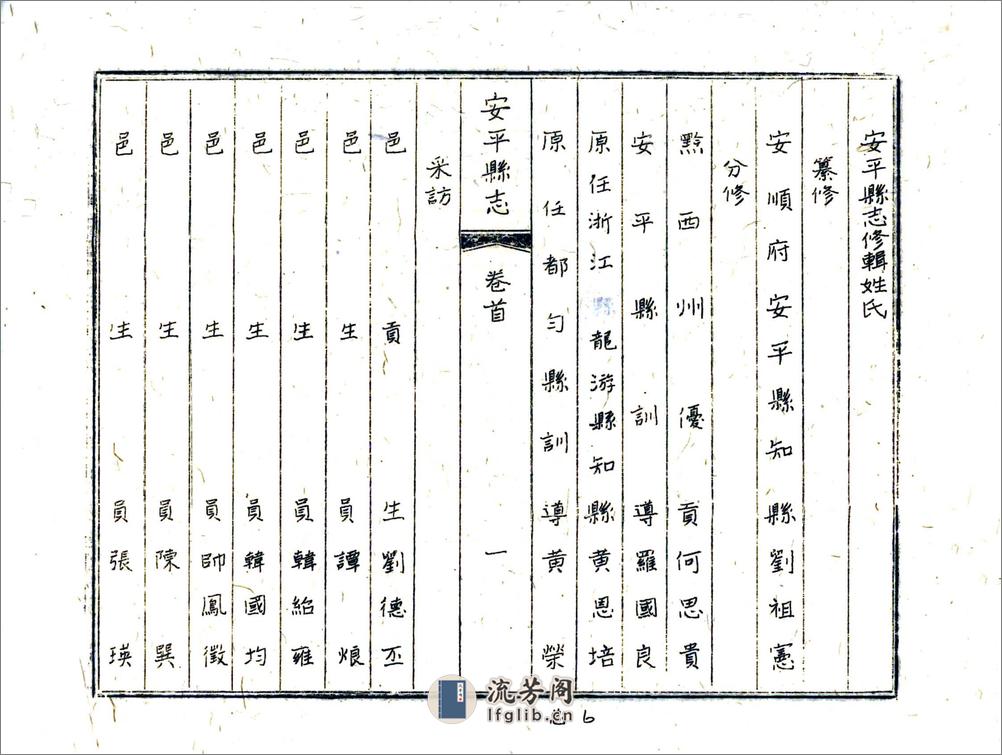 安平縣志修輯姓氏
纂修
安順府安平縣知縣劉祖憲
分修
黔西州優貢何思貴
安平縣訓導羅國良
原任浙江龍游縣知縣黄恩培
原任都勻縣訓導黄榮
安平縣志 卷首 一
采訪
邑貢生劉德丕
邑生員譚烺
邑生員韓紹雍
邑生員韓國均
邑生員帥鳳徵
邑生員陳巽
邑生員張瑛
流芳阁
lfglib.cn
6